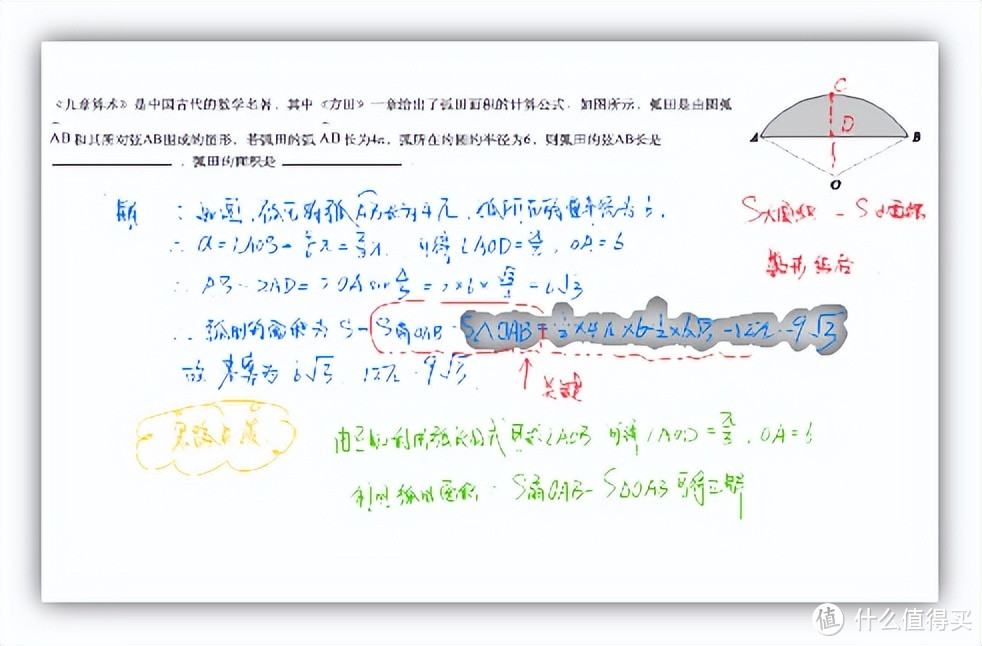 《九章算术》是中国古代的数学名著，其中《方田》一章给出了弧田面积的计算公式．如图所示，弧田是由圆弧
AB和其所对弦AB围成的图形，若弧田的弧AB长为4π，弧所在的圆的半径为6，则弧田的弦AB长是
________，弧田的面积是 ________
C
D
A
B
O
S大 - S小
数形结合
解：如图，弧AB长为4π，
∴ α=∠AOB= π=π，可得∠AOD=，OA=6
∴ AB=2AD=2OA sin = 2×6× = 6√3
∴ 弧田的面积为 S=S扇OAB-S△OAB=½×4π×6-½×6√3 =12π-9√3
故答案为 6√3，12π-9√3
关键
由已知利用弧长公式可求∠AOB 可得∠AOD=π/3，OA=6
利用弧田面积=S扇OAB-S△OAB可得
值 什么值得买